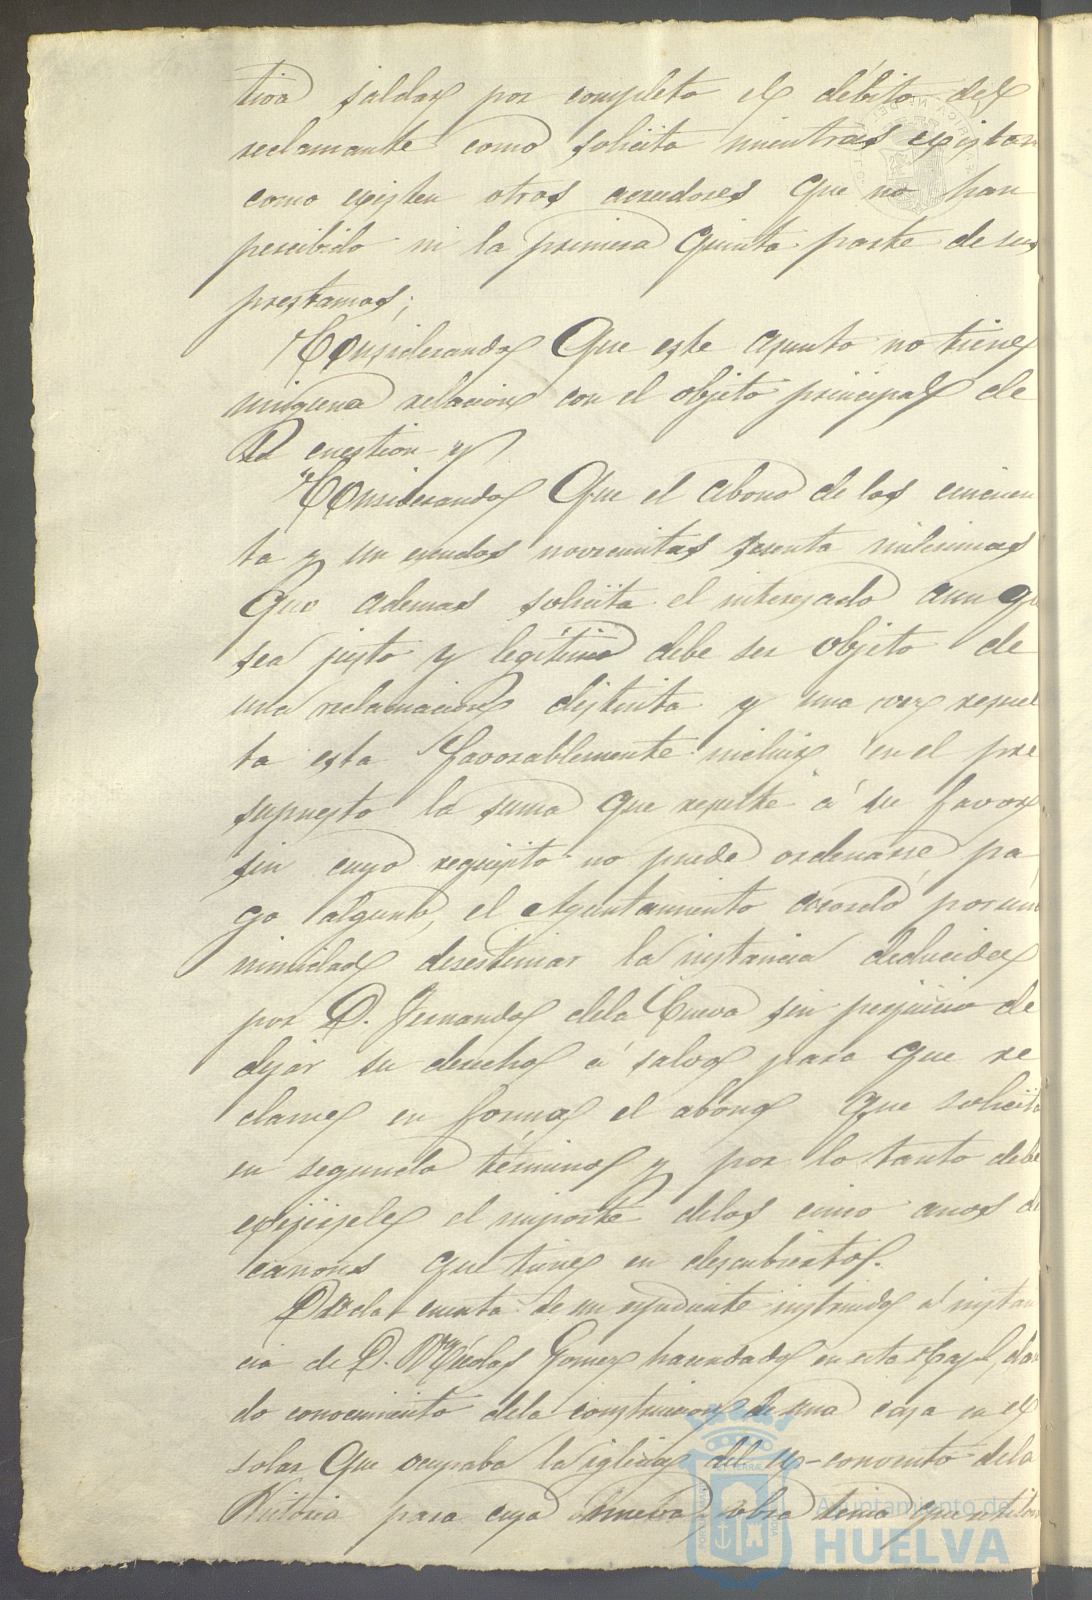 tiva saldar por completo el débito del
reclamante como solicita mientras existan
como existen otros acreedores que no han
percibido ni la primera quinta parte de sus
prestamos;
Considerando Que este asunto no tiene
ninguna relacion con el objeto principal de
la cuestion y
Considerando Que el abono de los cincuen
ta y un escudos novecientas sesenta milesimas
que ademas solicita el interesado aunq
sea justo y legítimo debe ser objeto de
una reclamacion distinta y una vez resuel
ta esta favorablemente incluir en el pre
supuesto la suma que resulte á su favor
sin cuyo requisito no puede ordenarse pa
go alguno, el Ayuntamiento acordó por una
nimidad desestimar la instancia deducida
por D. Fernando dela Cueva sin perjuicio de
dejar su derecho á salvo para que re
clame en forma el abono que solicita
en segundo término y por lo tanto debe
exijirsele el importe delos cinco anos de
canons que tiene en descubierto.
Dada cuenta de un espediente instruido á instan
cia de D. Nicolas Gomez hacendado en esta Cap.l dan
do conocimiento dela construccion de una casa en el
solar que ocupaba la iglesia del ex-convento dela
Victoria para cuya nueva obra tenia que utilizar
Ayuntamiento de
HUELVA